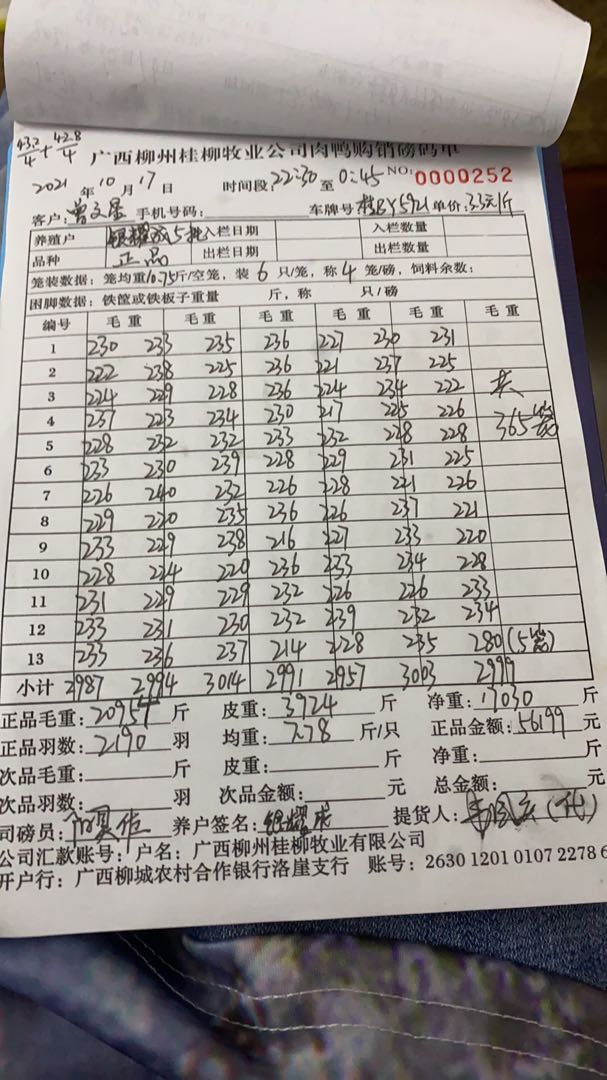 43.2/4 + 42.8/4
广西柳州桂柳牧业公司肉鸭购销磅码单
2021年10月17日 时间段:22:30至0:45 NO: 0000252
客户: 手机号码: 车牌号:桂BY5921 单价:3.3元/斤
养殖户 银耀成5批 入栏日期 入栏数量
品种 正品 出栏日期 出栏数量
笼装数据:笼均重10.75斤/空笼,装6只/笼,称4笼/磅,饲料余数:
困脚数据:铁筐或铁板子重量 斤,称 只/磅
编号 毛重 毛重 毛重 毛重 毛重 毛重
1 230 233 235 236 227 230 231
2 222 238 225 236 221 237 225
3 224 229 228 236 224 234 222 共
4 237 223 234 230 217 225 226 365笼
5 228 232 232 233 232 228 228
6 233 230 239 228 229 231 225
7 226 240 232 226 228 221 226
8 229 220 235 236 226 237 221
9 233 229 238 216 227 233 220
10 228 224 220 236 233 234 228
11 231 229 229 232 226 226 233
12 233 231 230 232 239 232 234
13 233 236 237 214 228 235 280(5笼)
小计 2987 2994 3014 2991 2957 3003 2999
正品毛重:20954斤 皮重:3924斤 净重:17030斤
正品羽数:2190羽 均重:7.78斤/只 正品金额:56199元
次品毛重: 斤 皮重: 斤 净重: 斤
次品羽数: 羽 次品金额: 元 总金额: 元
司磅员: 养户签名:银耀成 提货人: (代)
公司汇款账号:户名:广西柳州桂柳牧业有限公司
开户行:广西柳城农村合作银行洛崖支行 账号:2630 1201 0107 2278 6